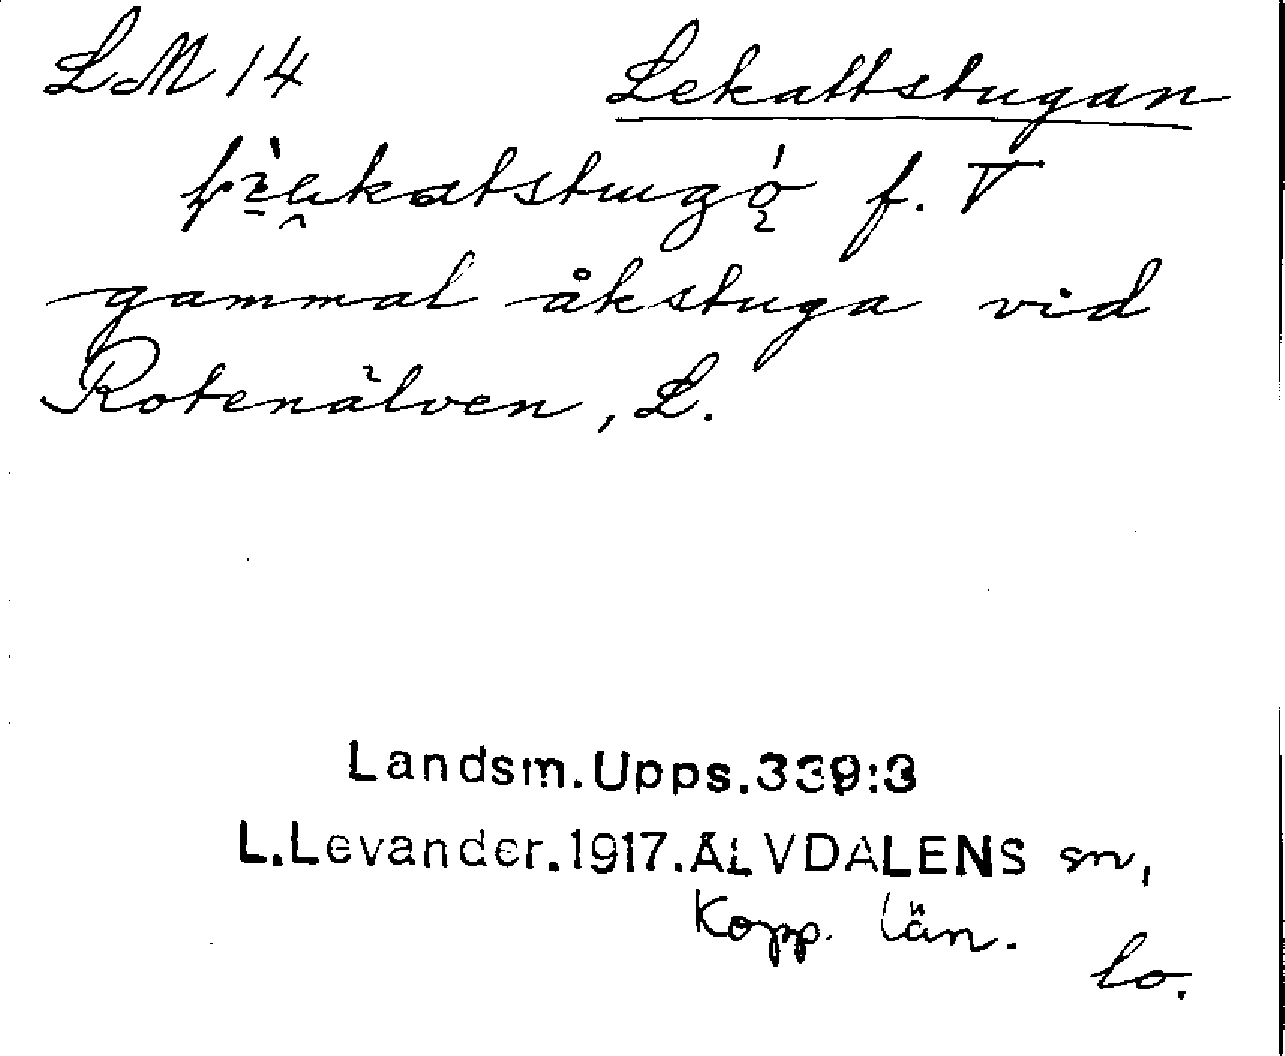 LM 14 Lekattstugan
f. V
gammal åkstuga vid
Rotenälven, L.
Landsm.Upps.339:3
L.Levander.1917.ÄLVDALENS sn,
Kopp. län.
lo.